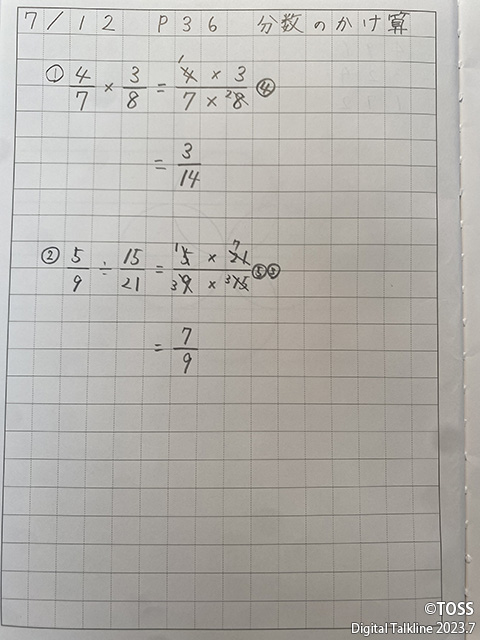 7/12 P36 分数のかけ算
① 4/7 × 3/8 = 1 4 × 3 / 7 × 2 8 ④
= 3/14
② 5/9 ÷ 15/21 = 1 5 × 7 21 / 3 9 × 3 15 ⑤③
= 7/9
©TOSS
Digital Talkline 2023.7